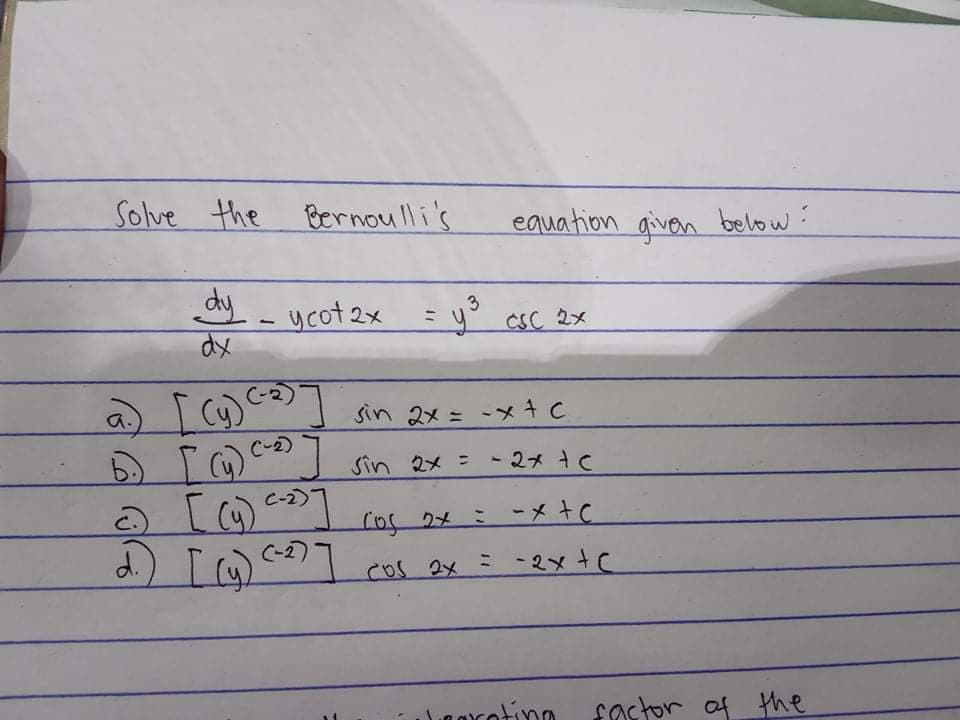 Solve the Bernoulli's equation given below:
dy/dx - ycot2x = y³ csc 2x
a.) [(y)^(-2)] sin 2x = -x + C
b.) [(y)^(-2)] sin 2x = -2x + C
c.) [(y)^(-2)] cos 2x = -x + C
d.) [(y)^(-2)] cos 2x = -2x + C
factor of the